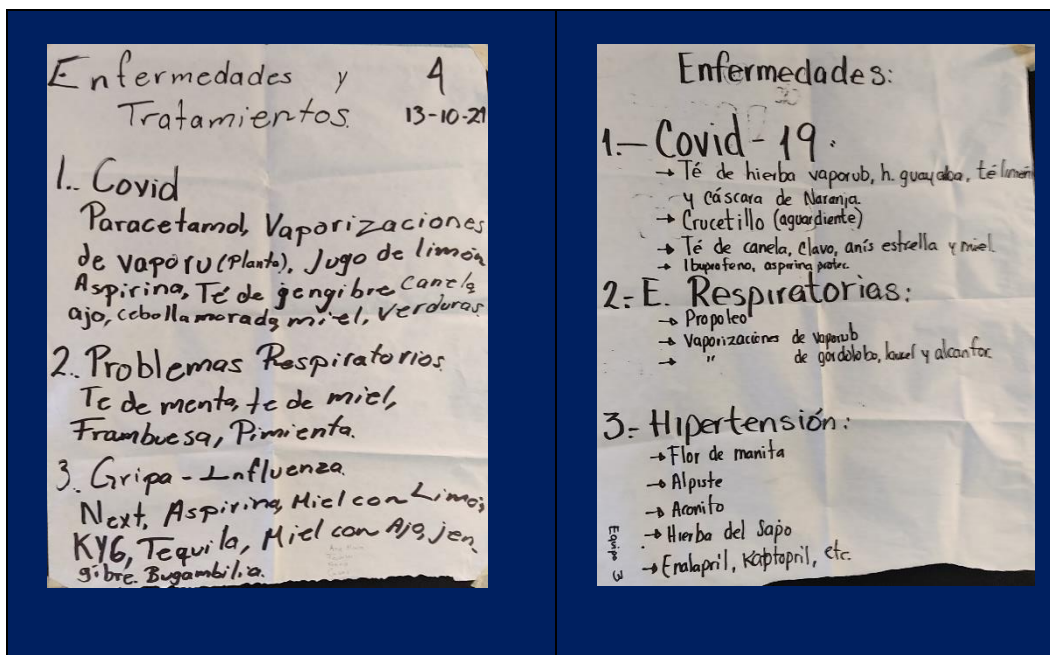 Enfermedades y 4
Tratamientos. 13-10-21
1.. Covid
Paracetamol, Vaporizaciones
de vaporu (Planta), Jugo de limón
Aspirina, Té de gengibre Canela
ajo, cebolla morada, miel, Verduras.
2.. Problemas Respiratorios.
Te de menta, te de miel,
Frambuesa, Pimienta.
3. Gripa - Influenza.
Next, Aspirina, Miel con Limon,
KY6, Tequila, Miel con Ajo, jen-
gibre. Bugambilia.
Enfermedades:
1.- Covid-19.
→ Té de hierba vaporub, h. guayaba, té limón
y cáscara de Naranja.
→ Crucetillo (aguardiente)
→ Té de canela, clavo, anís estrella y miel.
→ Ibuprofeno, aspirina protec.
2.- E. Respiratorias:
→ Propoleo
→ Vaporizaciones de vaporub
→ " de gordolobo, laurel y alcanfor.
3.- Hipertensión:
→ Flor de manita
→ Alpiste
→ Aconito
→ Hierba del Sapo
→ Enalapril, Kaptopril, etc.
Equipo 3